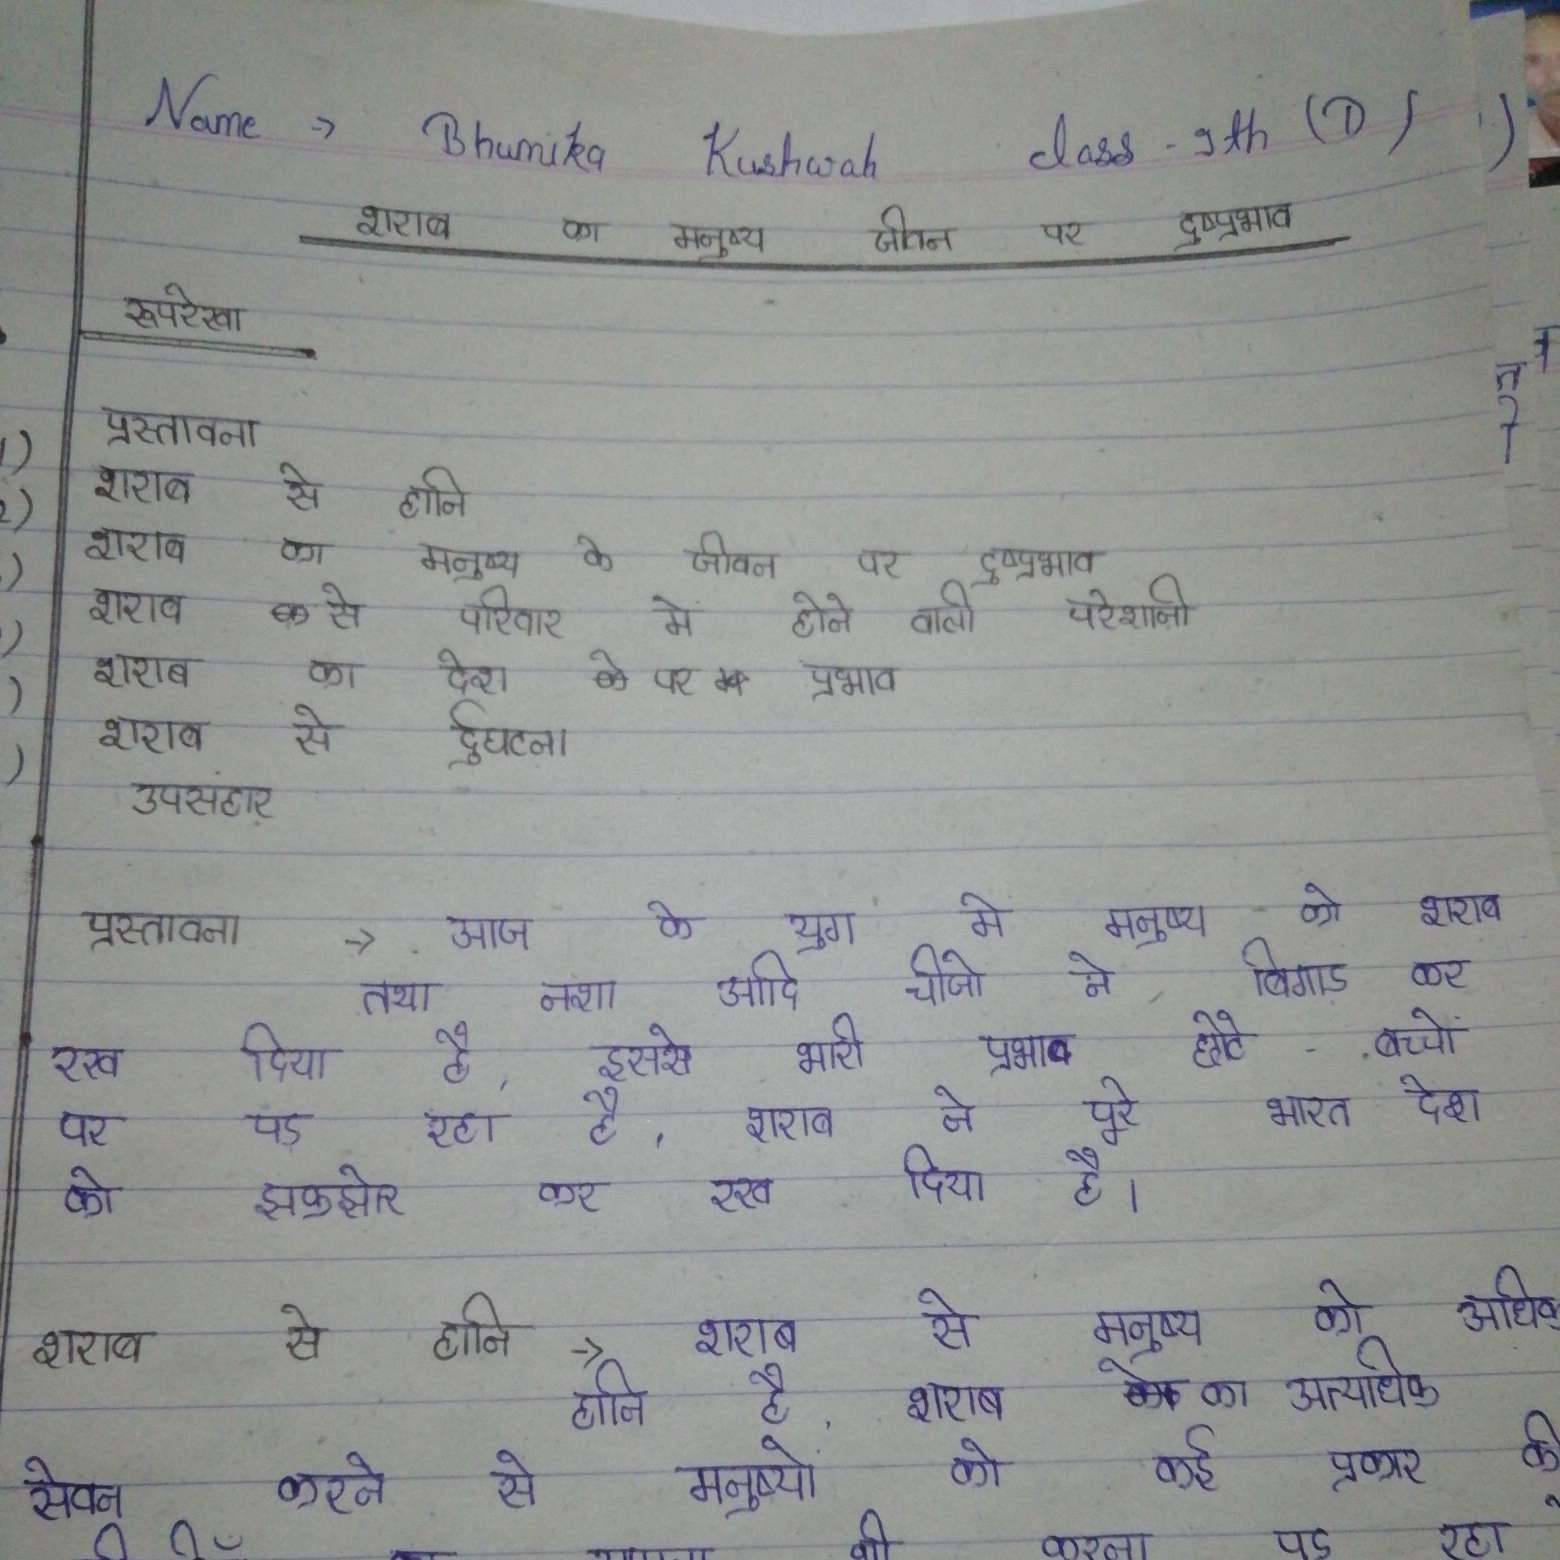 Name → Bhumika Kushwah class - 9th (D)
शराब का मनुष्य जीवन पर दुष्प्रभाव
रूपरेखा
1) प्रस्तावना
2) शराब से हानि
) शराब का मनुष्य के जीवन पर दुष्प्रभाव
) शराब से परिवार में होने वाली परेशानी
) शराब का देश के पर प्रभाव
) शराब से र्दुघटना
उपसंहार
प्रस्तावना → आज के युग मे मनुष्य को शराब
तथा नशा आदि चीजो ने बिगाड़ कर
रख दिया है, इससे भारी प्रभाव छोटे - बच्चों
पर पड़ रहा है, शराब ने पूरे भारत देश
को झकझोर कर रख दिया है।
शराब से हानि → शराब से मनुष्य को अधिक
हानि है, शराब का अत्याधिक
सेवन करने से मनुष्यो को कई प्रकार की
भी करना पड़ रहा